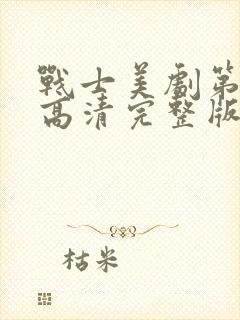 戰士美劇第
高清完整版
枯米